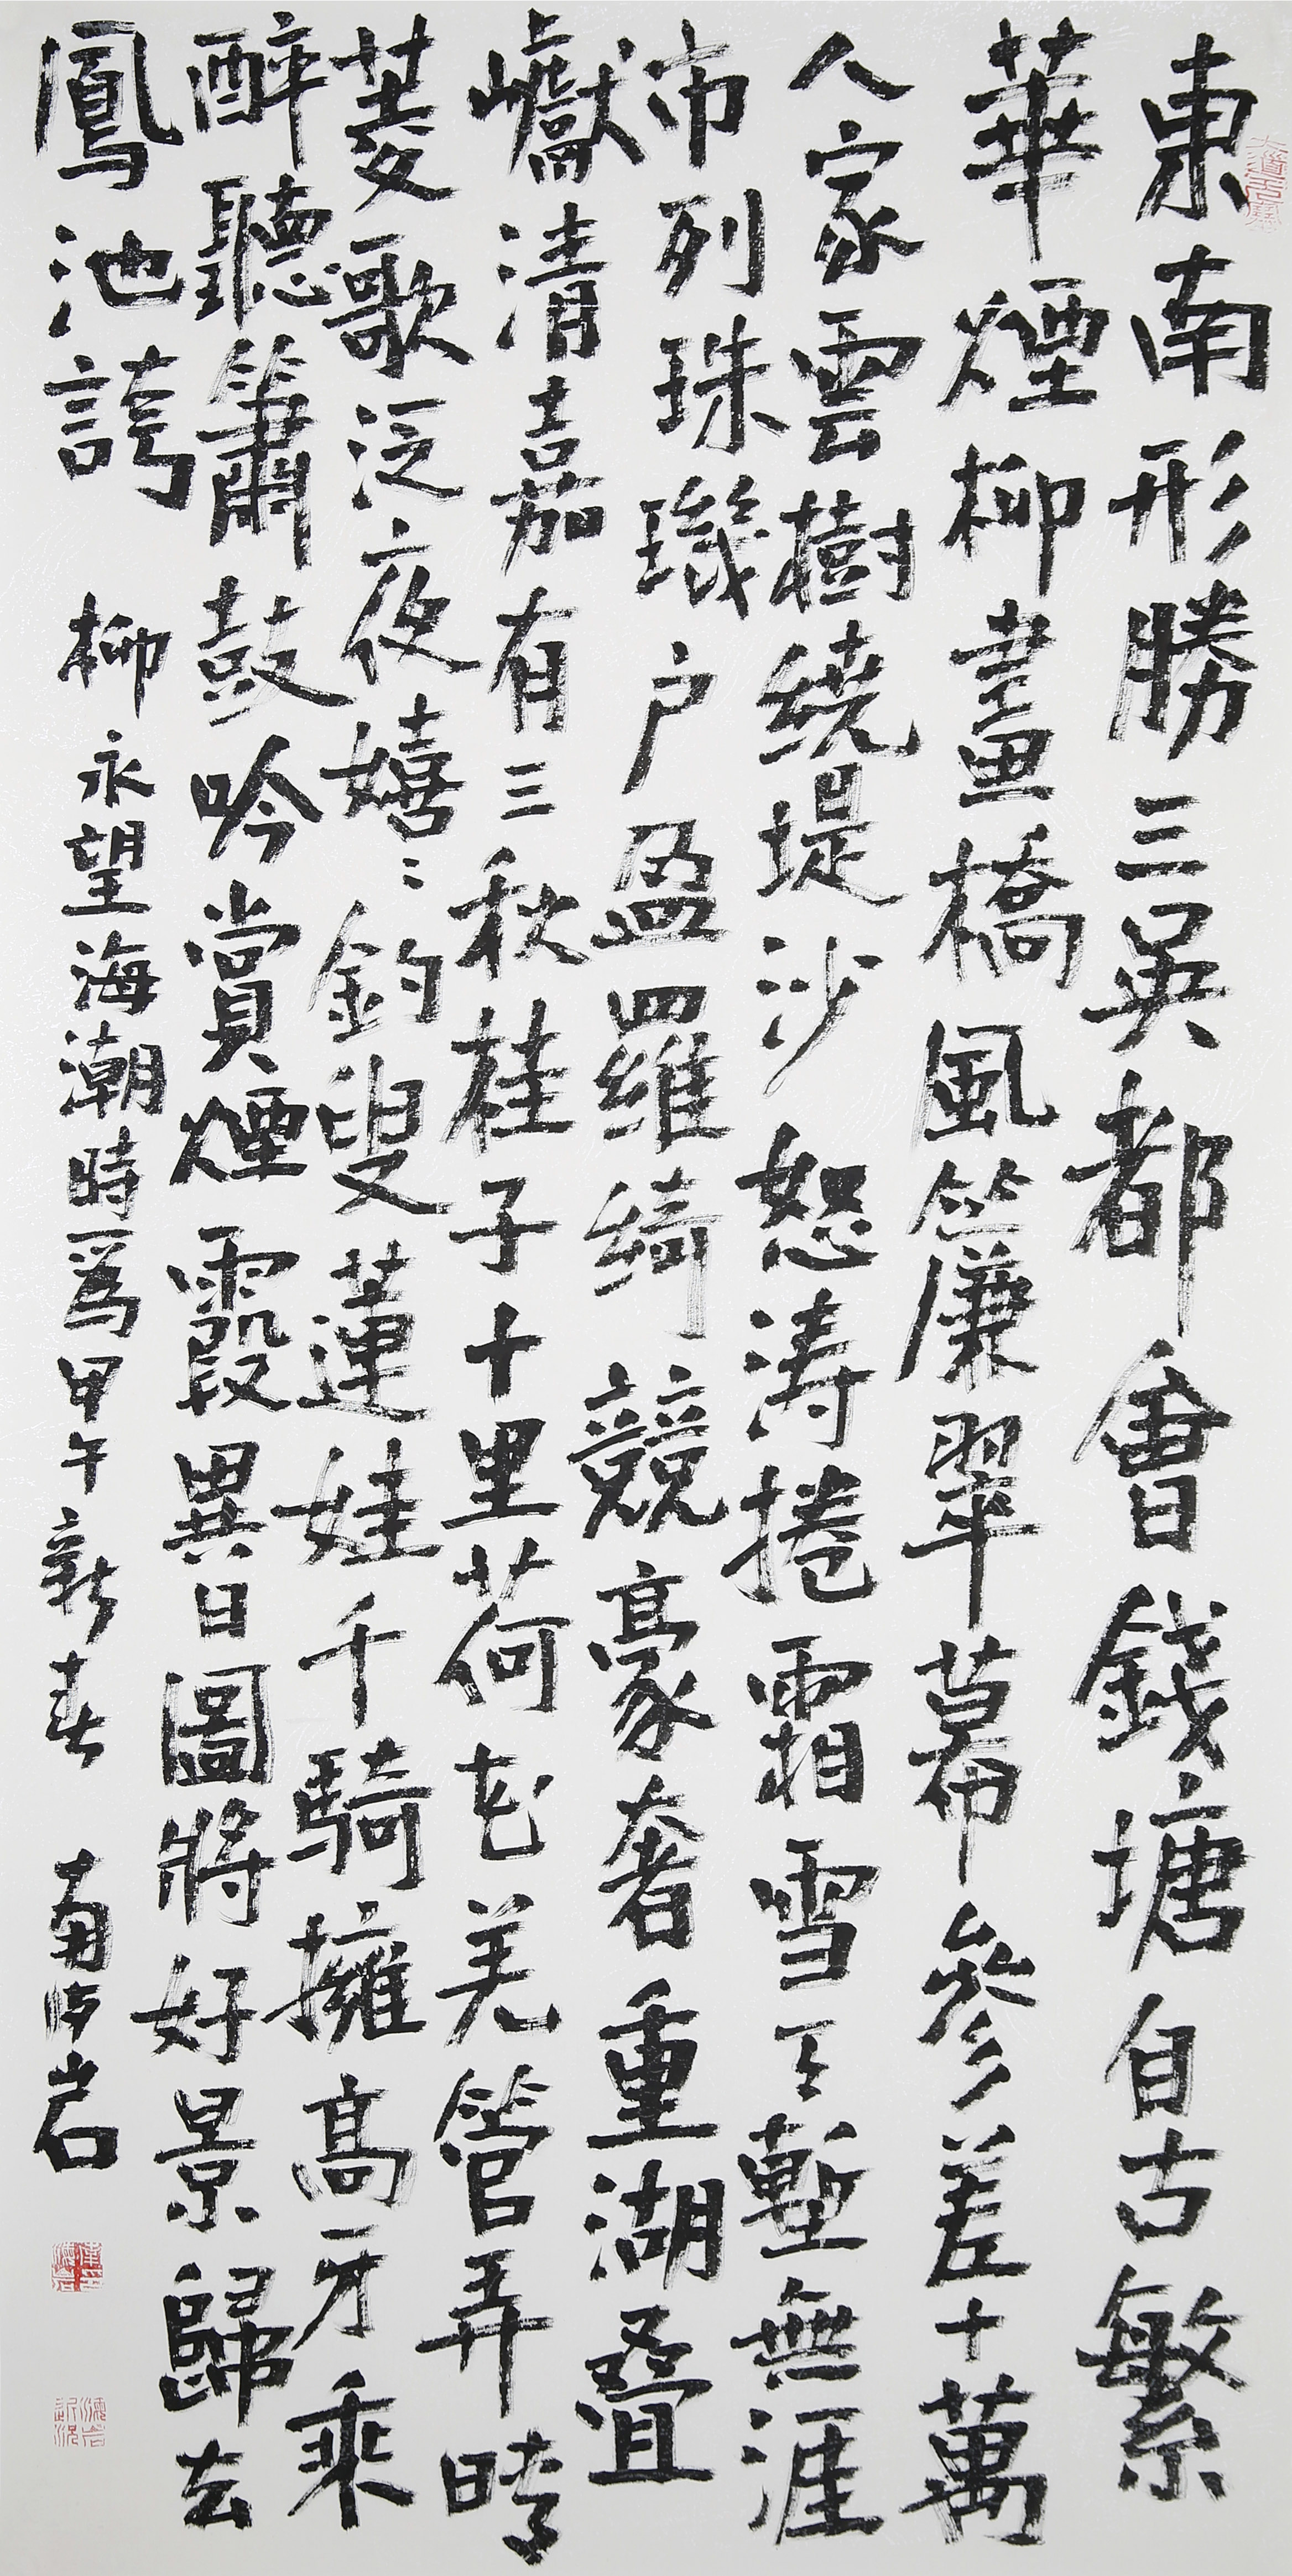 東南形勝三吳都會錢塘自古繁
華煙柳畫橋風簾翠幕參差十萬
人家雲樹繞堤沙怒濤捲霜雪天塹無涯
市列珠璣户盈羅綺競豪奢重湖叠
巘清嘉有三秋桂子十里荷花羌管弄晴
菱歌泛夜嬉嬉釣叟蓮娃千騎擁高牙乘
醉聽簫鼓吟賞煙霞異日圖將好景歸去
鳳池誇 柳永望海潮時爲甲午新春 岩